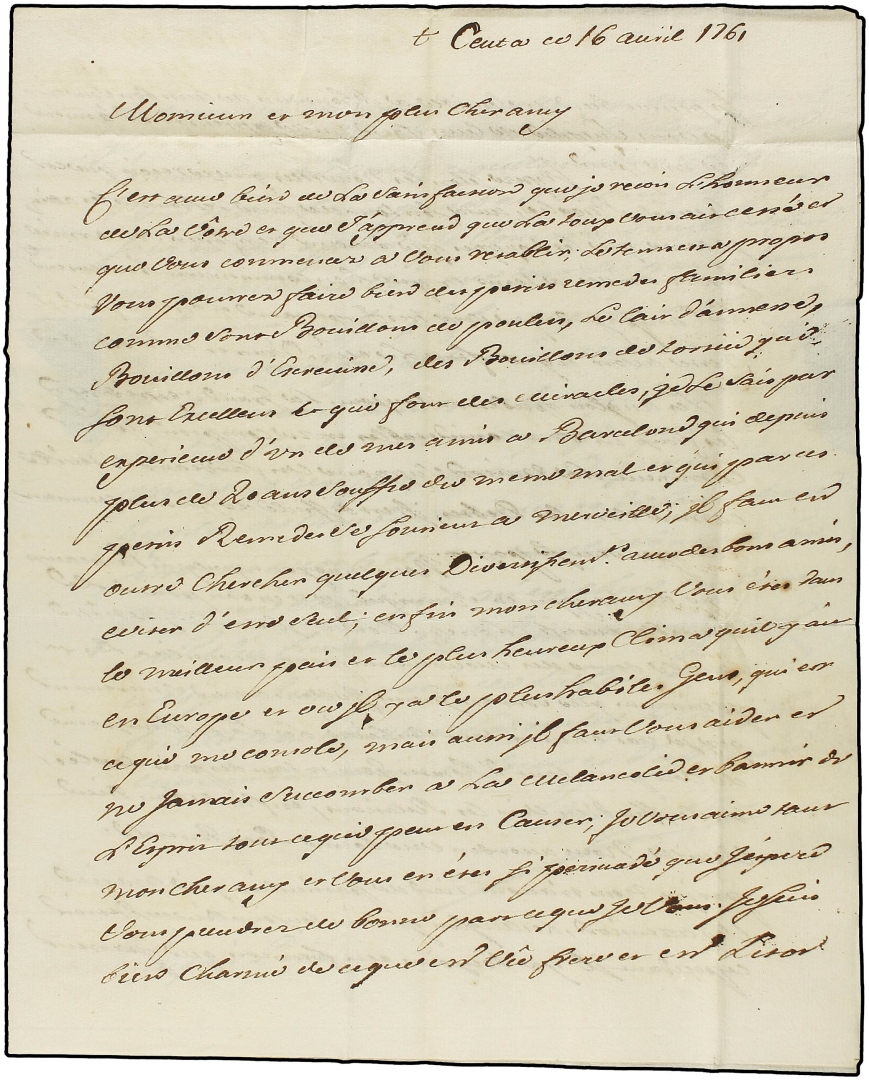 t Ceuta ce 16 avril 1761
Monsieur et mon plus Cher amy
C'est avec bien de La Satisfaction que je reçois L'honneur
de La Vôtre et que J'apprend que La toux Vous ait cessé et
que Vous commencez a Vous retablir. Le tems a propos
Vous pourrez faire bien des petits remedes familiers
comme sont Bouillons de poulets, Le lait d'annesse,
Bouillons d'Excrevisse, des Bouillons de tortüe qui
sont Excellens et qui font des miracles, je Le sais par
experience d'un de mes amis a Barcelone qui depuis
plus de 20 ans Souffre du meme mal et qui par ces
petits Remedes Se soutient a merveille; jl faut en
outre Chercher quelques Divertissem.ts avec des bons amis,
eviter d'etre Seul; enfin mon cher amy Vous étes dans
le meilleur païs et le plus heureux Clima qu'il y ait
en Europe et ou jl y a le plus habiles Gens, qui est
ce qui me console, mais aussi jl faut Vous aider et
ne Jamais Succomber a La melancolie et bannir de
L'Esprit tout ce qui peut en Causer, Je Vous aime tant
mon cher amy et Vous en étes si persuadé, que J'éspere
Vous prendrez de bonne part ce que Je Vous. Je suis
bien Charmé de ce que